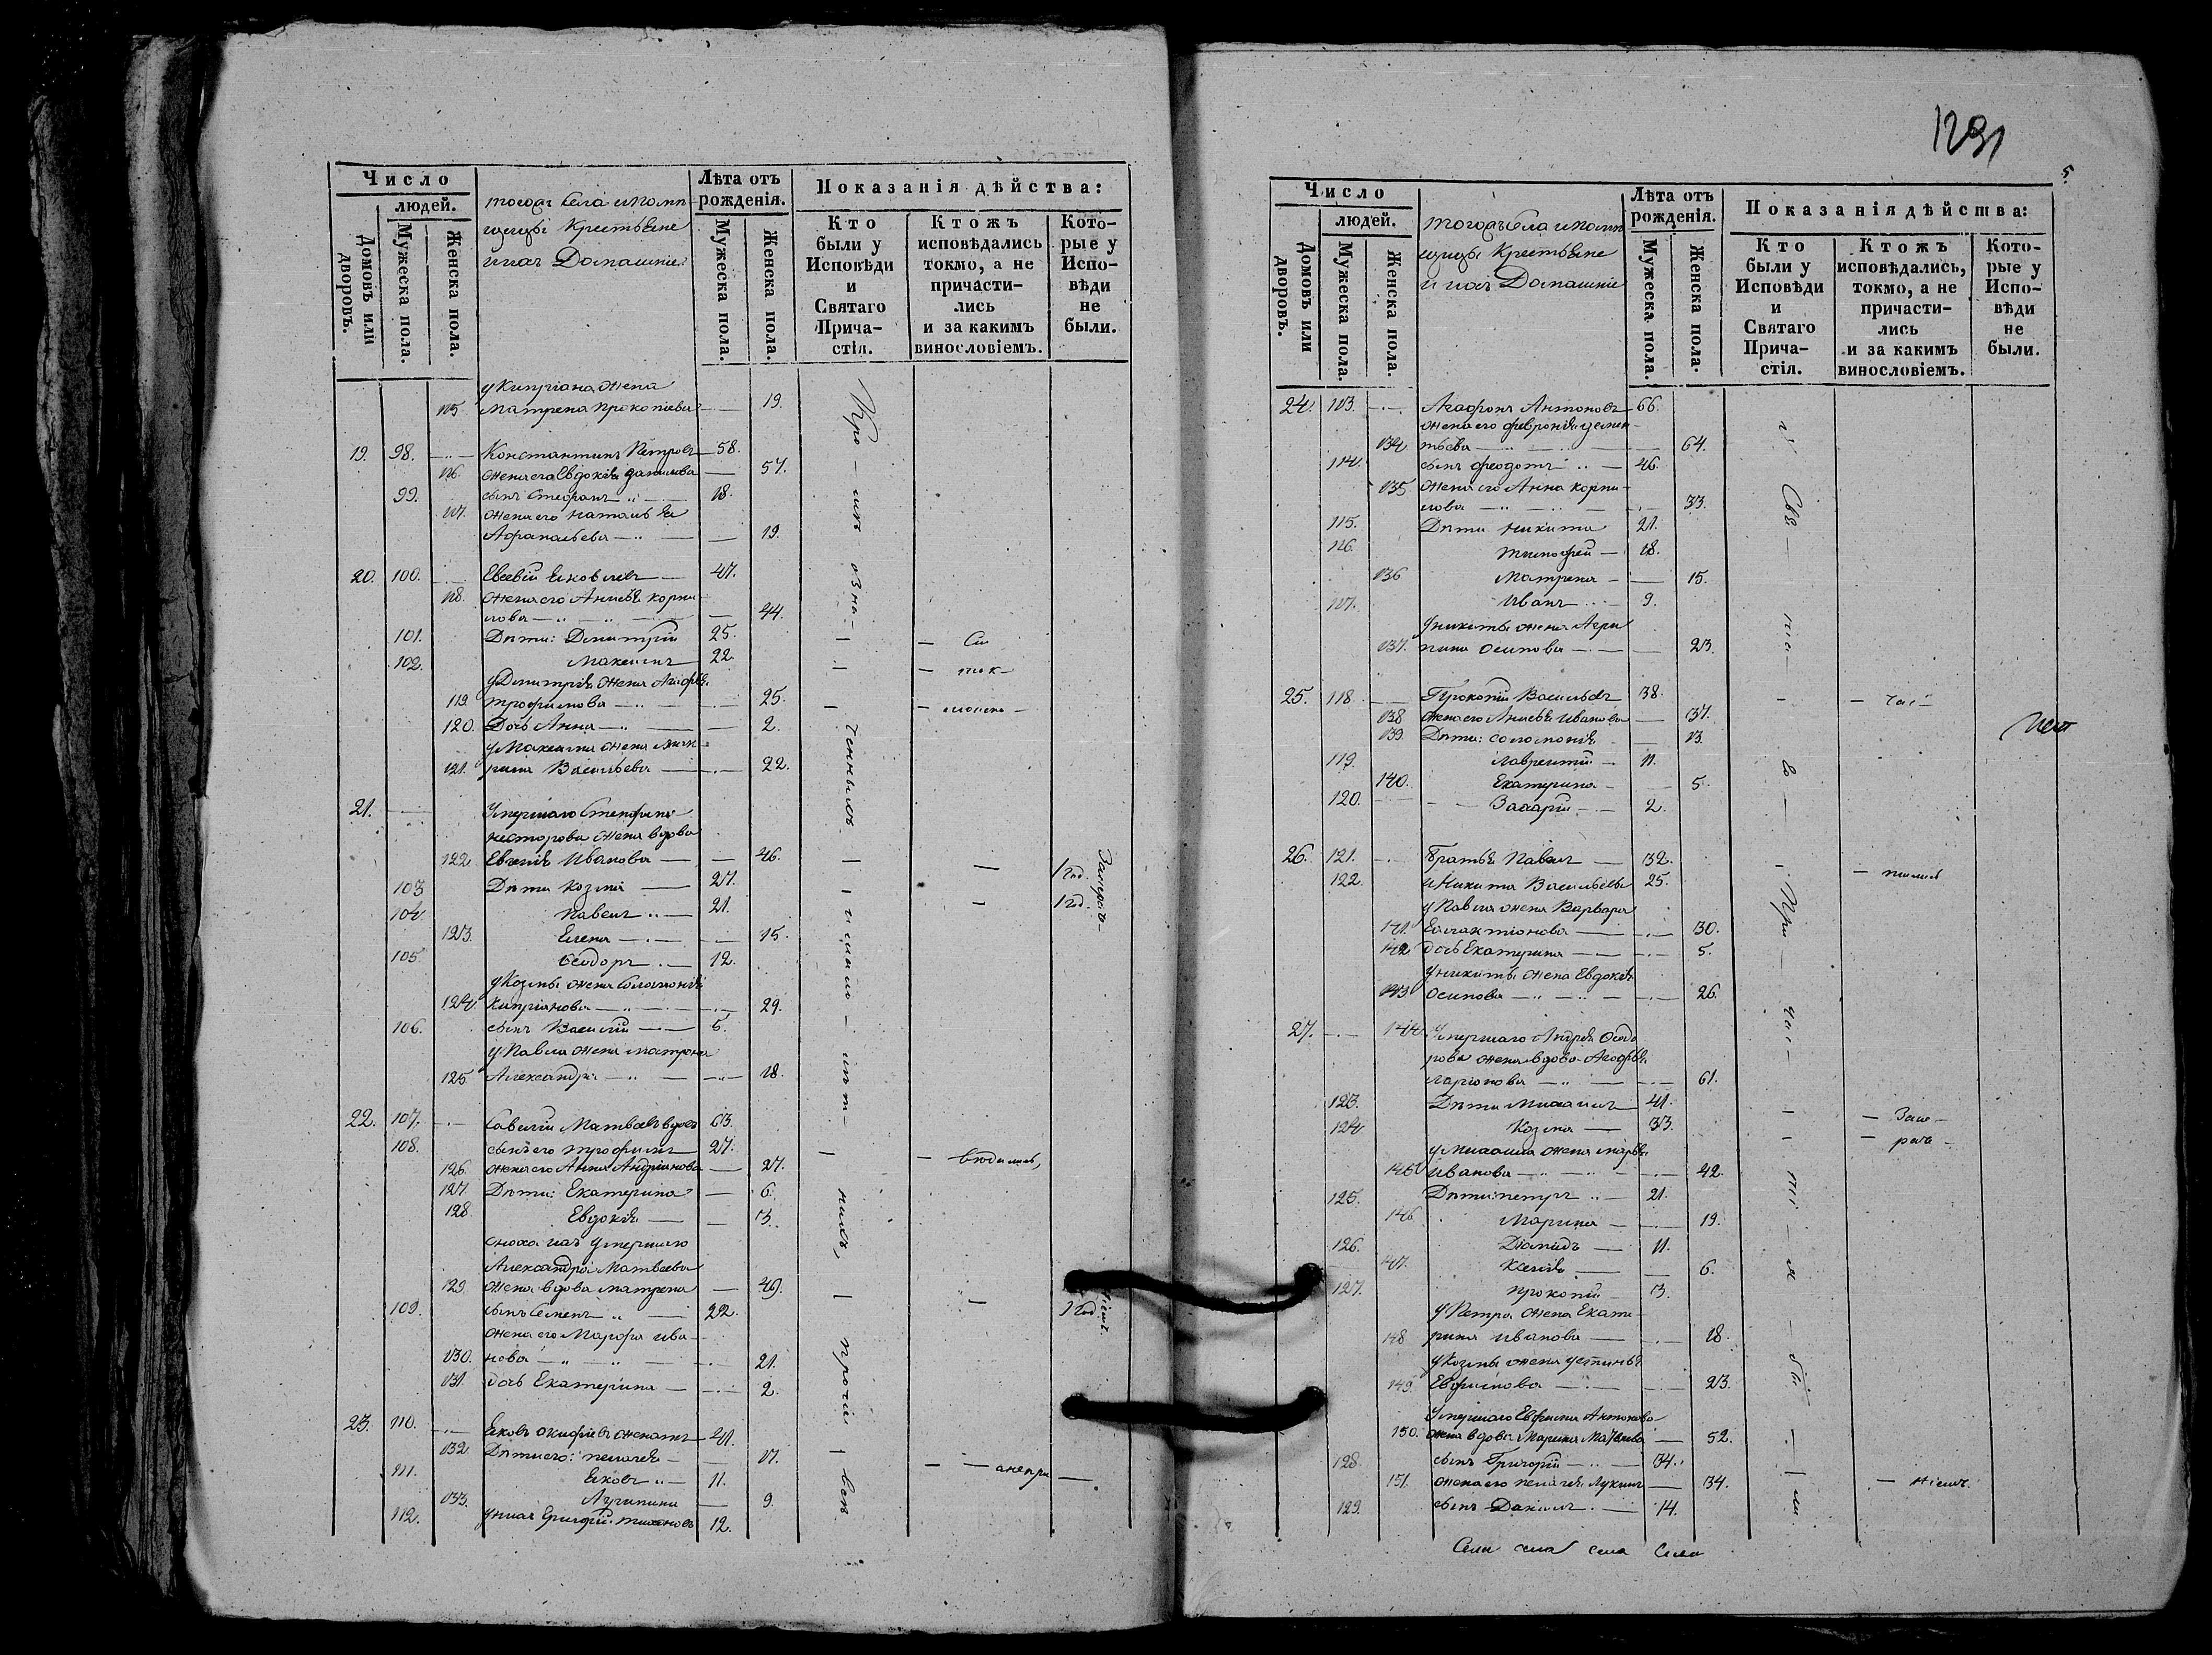 Число
людей.
Домовъ или дворовъ.
Мужеска пола.
Женска пола.
тогожъ села и помѣ
щицы Крестьяне
и ихъ Домашніе
Лѣта отъ рожденія.
Мужеска пола.
Женска пола.
Показанія дѣйства:
Кто были у Исповѣди и Святаго Прича-стія.
Ктожъ исповѣдались токмо, а не причасти-лись и за какимъ винословіемъ.
Кото-рые у Испо-вѣди не были.
у Кипріана жена
115 Матрена Прокопіева — 19.
19. 98. Константинъ Петровъ 58.
116. жена его Евдокія Данилова — 57.
99. сынъ Стефанъ 18.
117. жена его Наталья
Афанасьева — 19.
20. 100. Евсевій Яковлевъ — 47.
118. жена его Анисья Корни
лова — 44.
101. Дѣти: Димитрій 25.
102. Максимъ 22.
у Димитрія жена Агафья
119. Трофимова — 25.
120. Дочь Анна — 2.
у Максима жена
121. рина Васильева — 22.
21. Умершаго Стефана
Нестерова жена вдова
122. Евгенія Иванова — 46. 1 год.
103 Дѣти Козма — 27. 1 год.
104 Павелъ — 21.
123. Елена — 15.
105 Ѳеодоръ — 12.
у Козмы жена Соломонія
124. Кипріянова — 29.
106. сынъ Василій — 5.
у Павла жена Матрона
125. Александра — 18.
22. 107. Савелій Матвѣевъ вдовъ 63.
108. сынъ его Трофимъ 27.
126. жена его Анна Андріянова — 27.
127. Дѣти: Екатерина — 6.
128. Евдокія — 3.
сноха ихъ умершаго
Александра Матвеева
129 жена вдова Матрена — 49.
109. сынъ Семенъ 22. 1 год
жена его Марфа Ива-
130. нова — 21.
131. дочь Екатерина — 2.
23. 110. Яковъ женатъ 41.
132. Дѣти его: Пелагея — 17.
111. Яковъ — 11.
133. Агрипина — 9.
112. у нихъ Григорій 12.
1291
5.
Число
людей.
Домовъ или дворовъ.
Мужеска пола.
Женска пола.
тогожъ села и помѣ
щицы Крестьяне
и ихъ Домашніе
Лѣта отъ рожденія.
Мужеска пола.
Женска пола.
Показанія дѣйства:
Кто были у Исповѣди и Святаго Прича-стія.
Ктожъ исповѣдались, токмо, а не причасти-лись и за какимъ винословіемъ.
Кото-рые у Испо-вѣди не были.
24. 113. Агафонъ Антоновъ 66.
жена его Февронія Демен-
134 тьева — 64.
114. сынъ Феодотъ — 46.
135 жена его Анна Корни-
лова — 33.
115. Дѣти Никита 21.
116. Тимофей — 18.
136 Матрена — 15.
117. Иванъ — 9.
у Никиты жена Агри
137. пина Осипова — 23.
25. 118. Прокопій Васильевъ 38.
138 жена его Анисья Иванова — 37.
139. Дѣти: Соломонія 13.
119. Лаврентій — 11.
140. Екатерина — 5.
120. Захарій — 2.
26. 121. Братья Павелъ — 32.
122. и Никита Васильевы 25.
у Павла жена Варвара
141. Галактіонова — 30.
142 дочь Екатерина — 5.
у Никиты жена Евдокія
143 Осипова — 26.
27. 144. Умершаго Андрея Ѳеодо
рова жена вдова Агафья
Ларіонова — 61.
123. Дѣти Михаилъ 41.
124 Козма — 33.
у Михаила жена Марья
145 Иванова — 42.
125. Дѣти: Петръ — 21.
146 Марина — 19.
126. Даніилъ — 11.
147. Ксенія — 6.
127. Прокопій — 3.
у Петра жена Екате-
148 рина Иванова — 18.
у Козмы жена Устинья
149. Евфимова — 23.
Умершаго Евфима Антонова
150. жена вдова Марина Матвеева — 52.
128. сынъ Григорій — 34.
151. жена его Пелагея Лукина — 34.
129. сынъ Даніилъ — 14.
Села села села Села